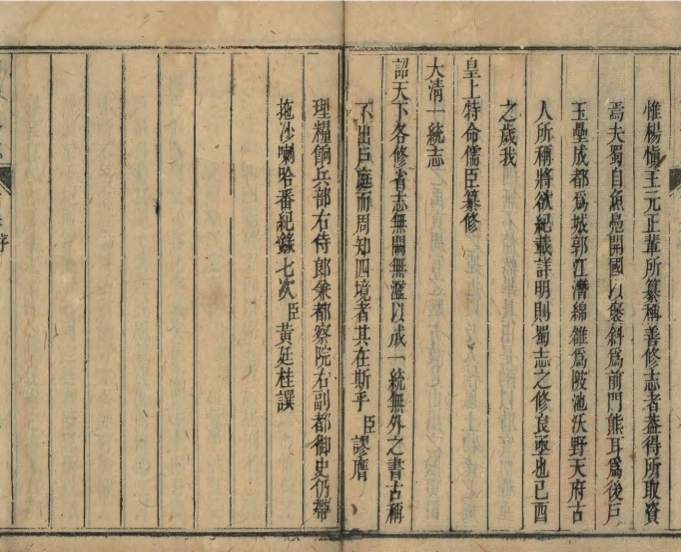 惟楊愼王元正輩所纂稱善修志者葢得所取資
焉夫蜀自魚鳧開國以褒斜爲前門熊耳爲後戶
玉壘成都爲城郭江潛綿雒爲陂池沃野天府古
人所稱將欲紀載詳明則蜀志之修良亟也己酉
之歲我
皇上特命儒臣纂修
大清一統志
詔天下各修省志無闕無濫以成一統無外之書古稱
不出戶庭而周知四境者其在斯乎臣謬膺
理糧餉兵部右侍郎兼都察院右副都御史仍帶
拖沙喇哈番紀錄七次臣黃廷桂譔
序